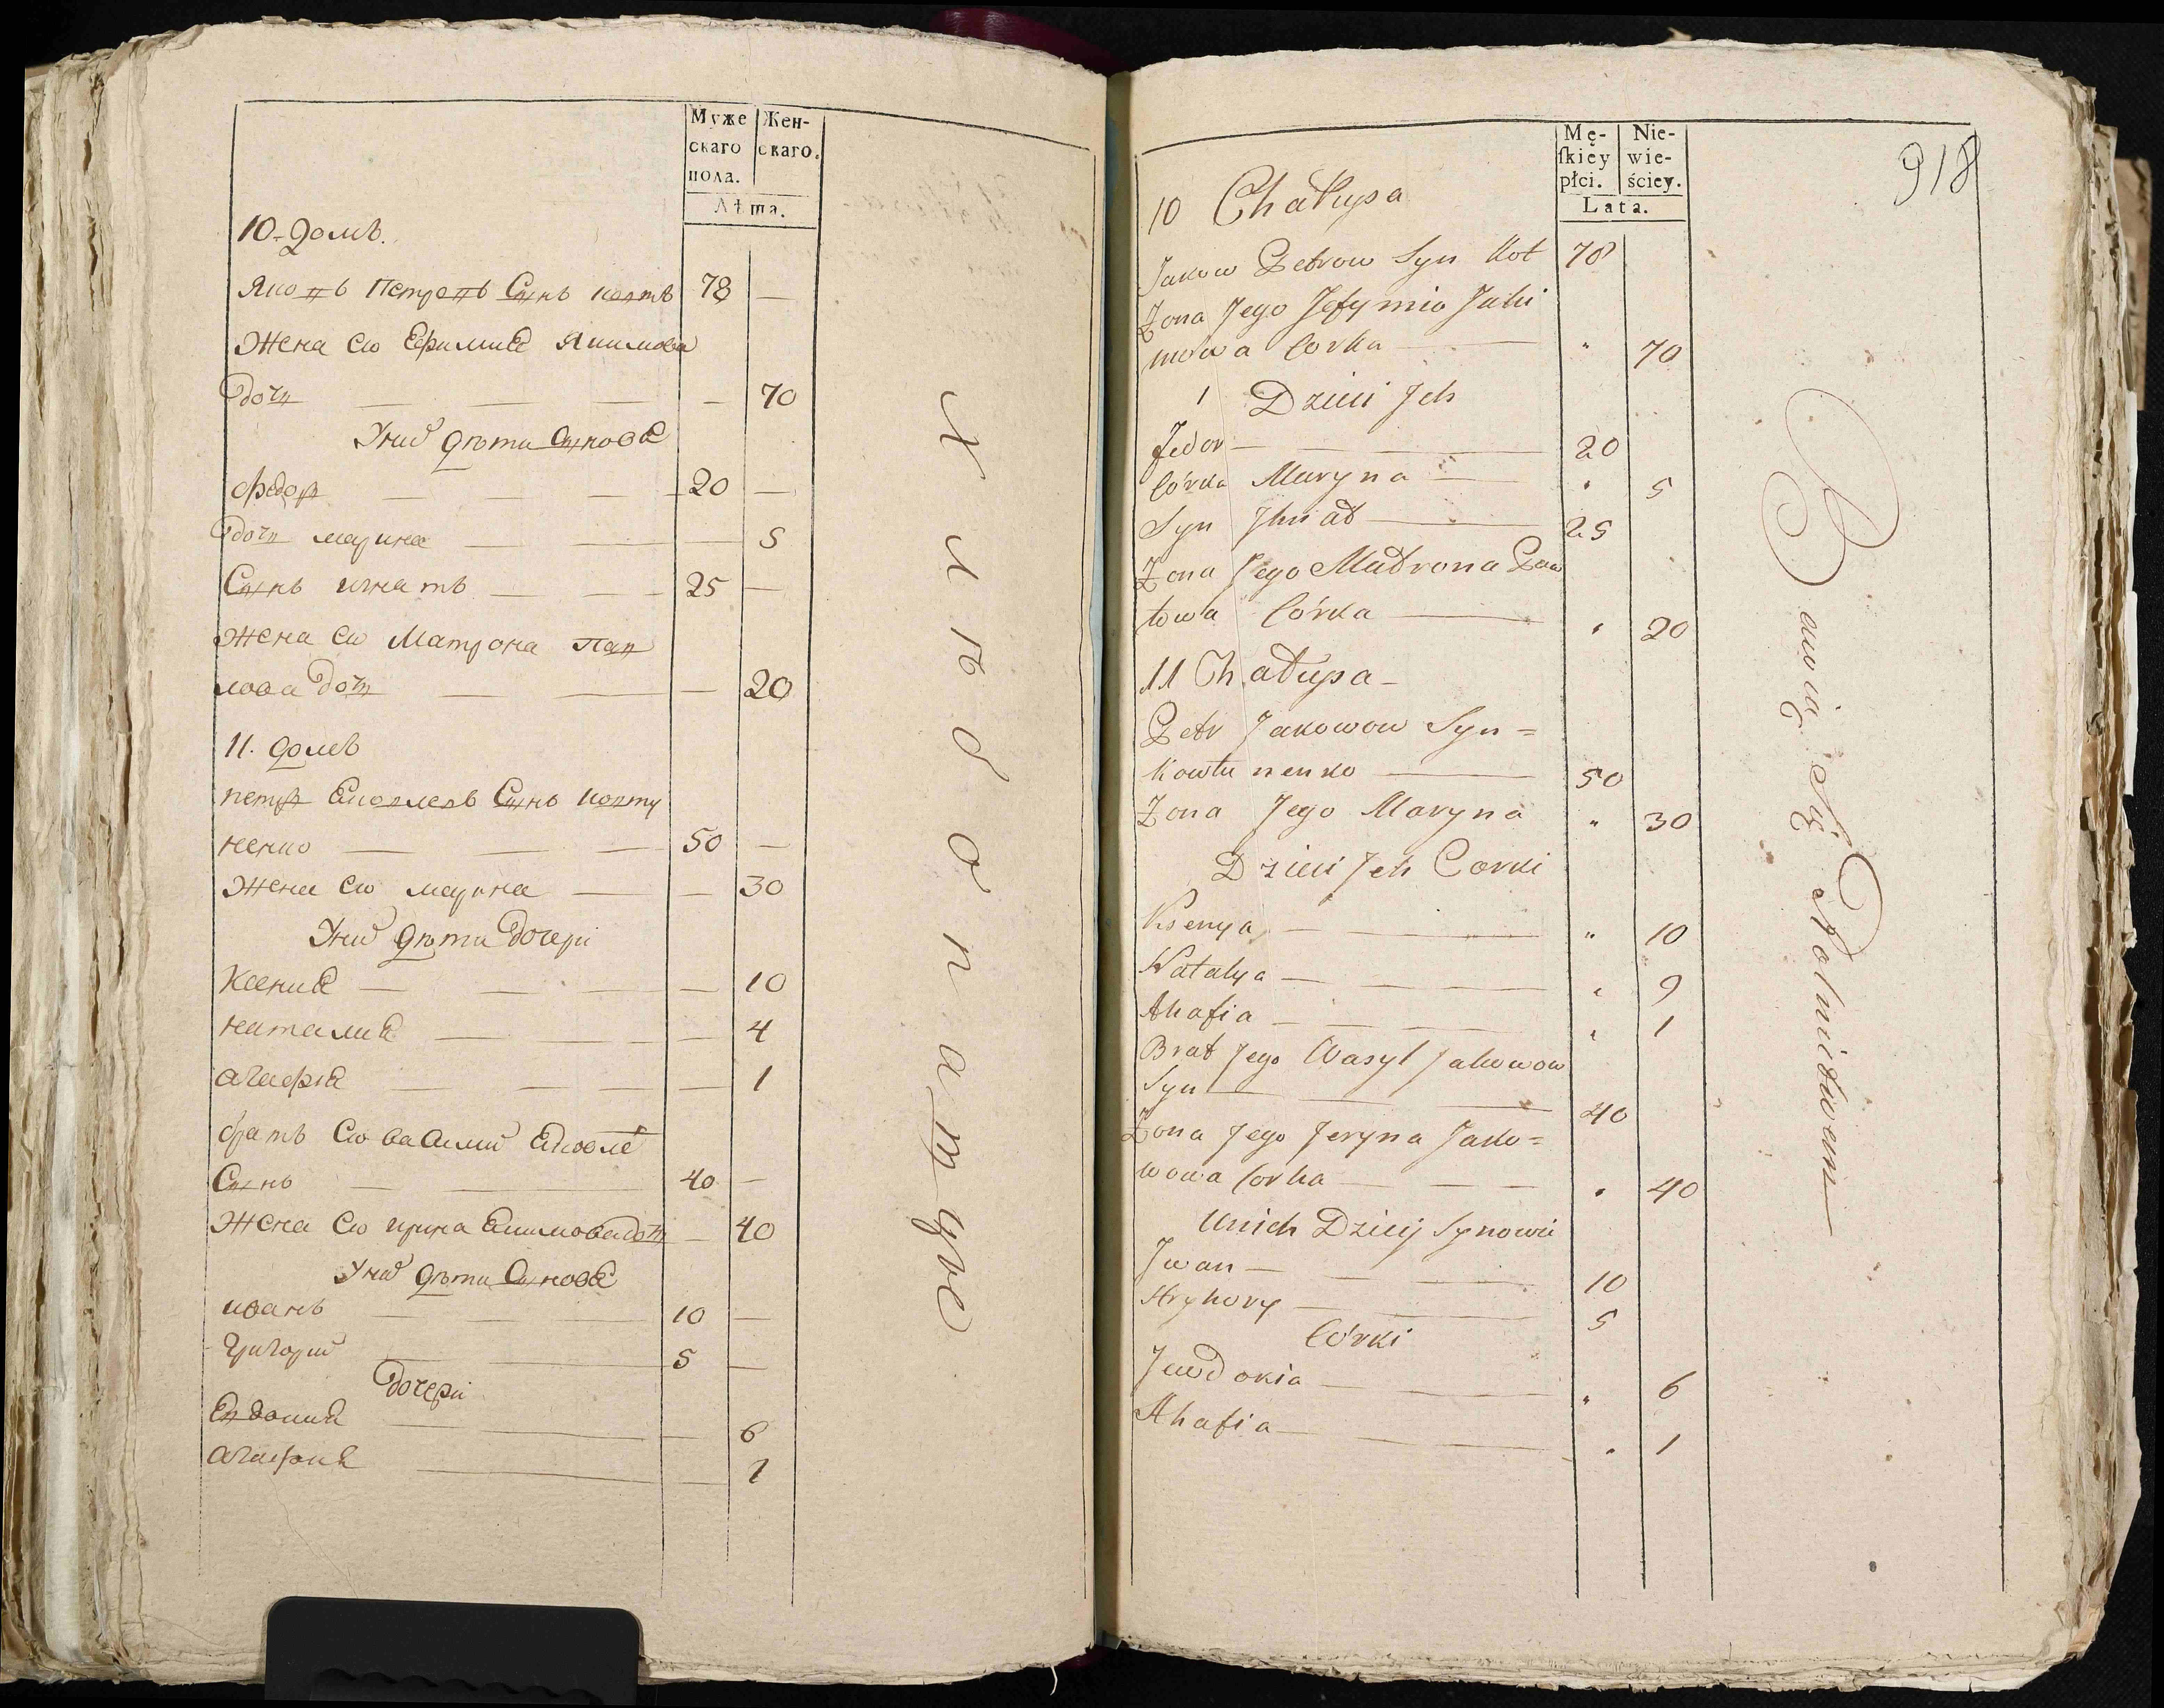 Муже
скаго
пола.
Жен-
скаго.
Лѣта.
10. домъ.
Яковъ Петровъ Сынъ Ковтъ 78 —
Жена его Ефимия Якимова
дочь — — — — 70
У них дѣти Сынове
Федор — — — 20 —
Дочь марина — — — 5
Сынъ игнатъ — — 25 —
Жена его Матрона Пав
лова дочь — — — 20
11. домъ
петръ Яковлевъ Сынъ Ковту
ненко — — — 50 —
Жена его марина — — 30
У них дѣти дочери
Ксения — — — — 10
наталия — — — — 4
агафия — — — — 1
братъ его василий Яковле
Сынъ — — 40 —
Жена его ирина Екимова дочь — 40
У них дѣти Сынове
иванъ — — — 10 —
Григорий — — 5 —
дочери
Евдокия — — — 6
агафия — — — 1
Хлѣбопашцы
Mę-
skiey
płci.
Nie-
wie-
ściey.
Lata.
918
10 Chałupa
Jakow Petrow Syn Kot 78
Zona Jego Jefymia Jaki
mowa Corka — " 70
1 Dzieci Jch
Fedor — — — 20
Córka Maryna — " 5
Syn Jhnat — 25
Zona Jego Matrona Paw
lowa Córka — " 20
11 Chałupa —
Petr Jakowow Syn =
Kowtunenko — 50
Zona Jego Maryna " 30
Dzieci Jch Corki
Ksenya — — " 10
Natalya — — — " 9
Ahafia — — — " 1
Brat Jego Wasyl Jakowow
Syn — — — 40
Zona Jego Jeryna Jako=
wowa Corka — — — " 40
Unich Dziecij Synowie
Jwan — — — 10
Hryhory — — 5
Córki
Jewdokia — — — " 6
Ahafia — — — " 1
Bawią Się Rolnictwem